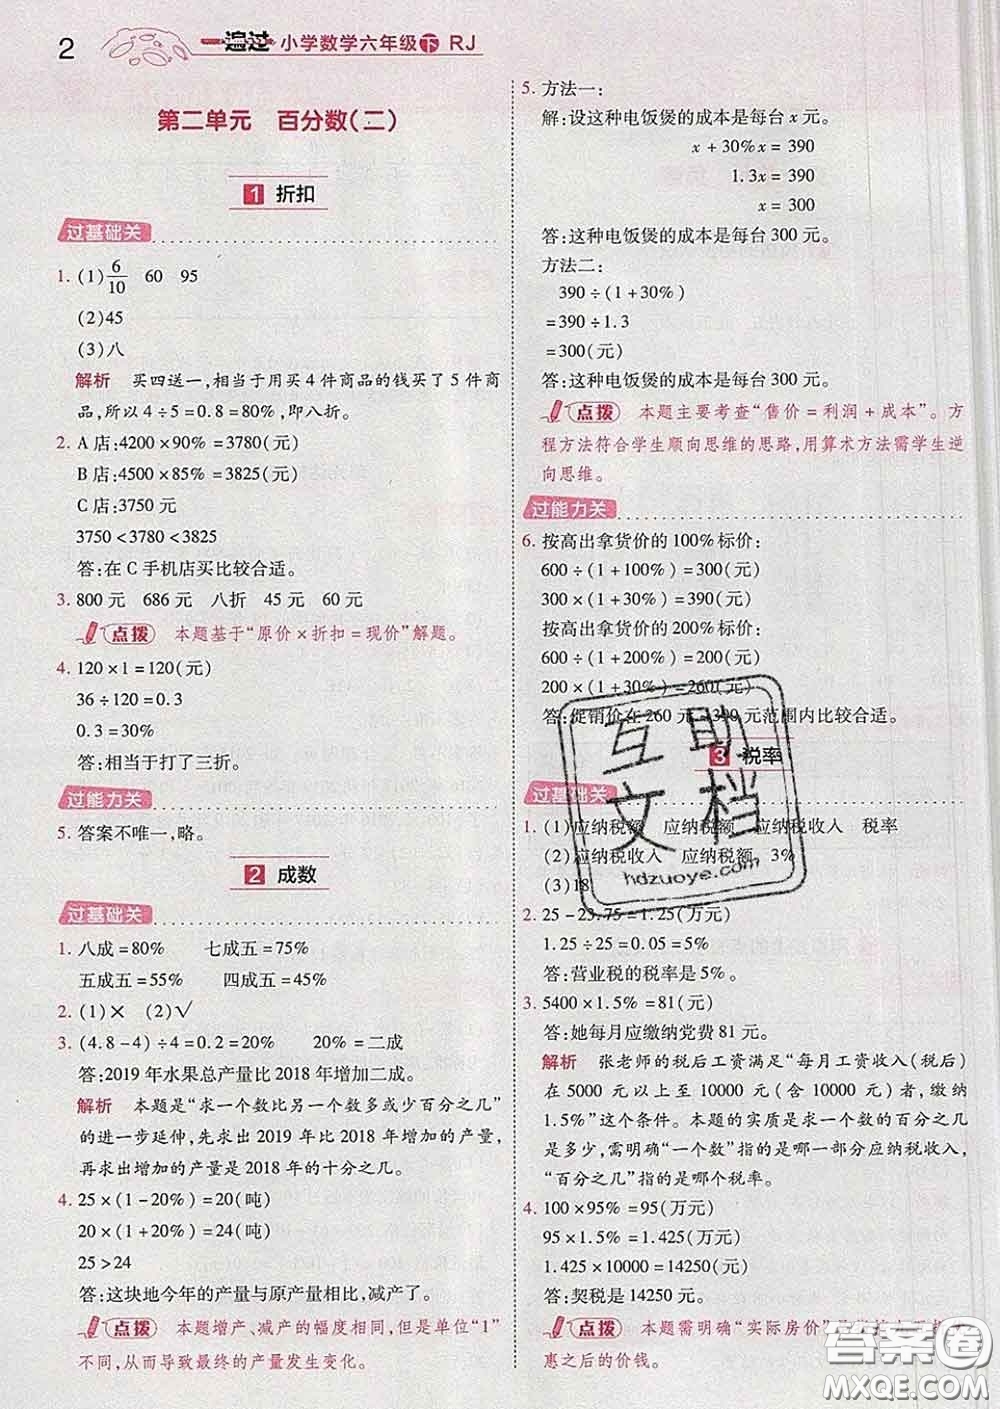 2
一遍过 小学数学六年级 下 RJ
第二单元 百分数(二)
1 折扣
过基础关
1. (1) 6/10 60 95
(2)45
(3)八
解析 买四送一,相当于用买4件商品的钱买了5件商
品,所以4÷5=0.8=80%,即八折。
2. A店:4200×90%=3780(元)
B店:4500×85%=3825(元)
C店:3750元
3750<3780<3825
答:在C手机店买比较合适。
3. 800元 686元 八折 45元 60元
点拨 本题基于“原价×折扣=现价”解题。
4. 120×1=120(元)
36÷120=0.3
0.3=30%
答:相当于打了三折。
过能力关
5. 答案不唯一,略。
2 成数
过基础关
1. 八成=80% 七成五=75%
五成五=55% 四成五=45%
2. (1)× (2)√
3. (4.8-4)÷4=0.2=20% 20%=二成
答:2019年水果总产量比2018年增加二成。
解析 本题是“求一个数比另一个数多或少百分之几”
的进一步延伸,先求出2019年比2018年增加的产量,
再求出增加的产量是2018年的十分之几。
4. 25×(1-20%)=20(吨)
20×(1+20%)=24(吨)
25>24
答:这块地今年的产量与原产量相比,减产了。
点拨 本题增产、减产的幅度相同,但是单位“1”
不同,从而导致最终的产量发生变化。
5. 方法一:
解:设这种电饭煲的成本是每台x元。
x+30%x=390
1.3x=390
x=300
答:这种电饭煲的成本是每台300元。
方法二:
390÷(1+30%)
=390÷1.3
=300(元)
答:这种电饭煲的成本是每台300元。
点拨 本题主要考查“售价=利润+成本”。方
程方法符合学生顺向思维的思路,用算术方法需学生逆
向思维。
过能力关
6. 按高出拿货价的100%标价:
600÷(1+100%)=300(元)
300×(1+30%)=390(元)
按高出拿货价的200%标价:
600÷(1+200%)=200(元)
200×(1+30%)=260(元)
答:促销价在260元~390元范围内比较合适。
3 税率
过基础关
1. (1)应纳税额 应纳税额 应纳税收入 税率
(2)应纳税收入 应纳税额 3%
(3)18
2. 25-23.75=1.25(万元)
1.25÷25=0.05=5%
答:营业税的税率是5%。
3. 5400×1.5%=81(元)
答:她每月应缴纳党费81元。
解析 张老师的税后工资满足“每月工资收入(税后)
在5000元以上至10000元(含10000元)者,缴纳
1.5%”这个条件。本题的实质是求一个数的百分之几
是多少,需明确“一个数”指的是哪一部分应纳税收入,
“百分之几”指的是哪个税率。
4. 100×95%=95(万元)
95×1.5%=1.425(万元)
1.425×10000=14250(元)
答:契税是14250元。
点拨 本题需明确“实际房价”
惠之后的价钱。
互助
文档
hdzuoye.com
答案圈
MXQE.COM